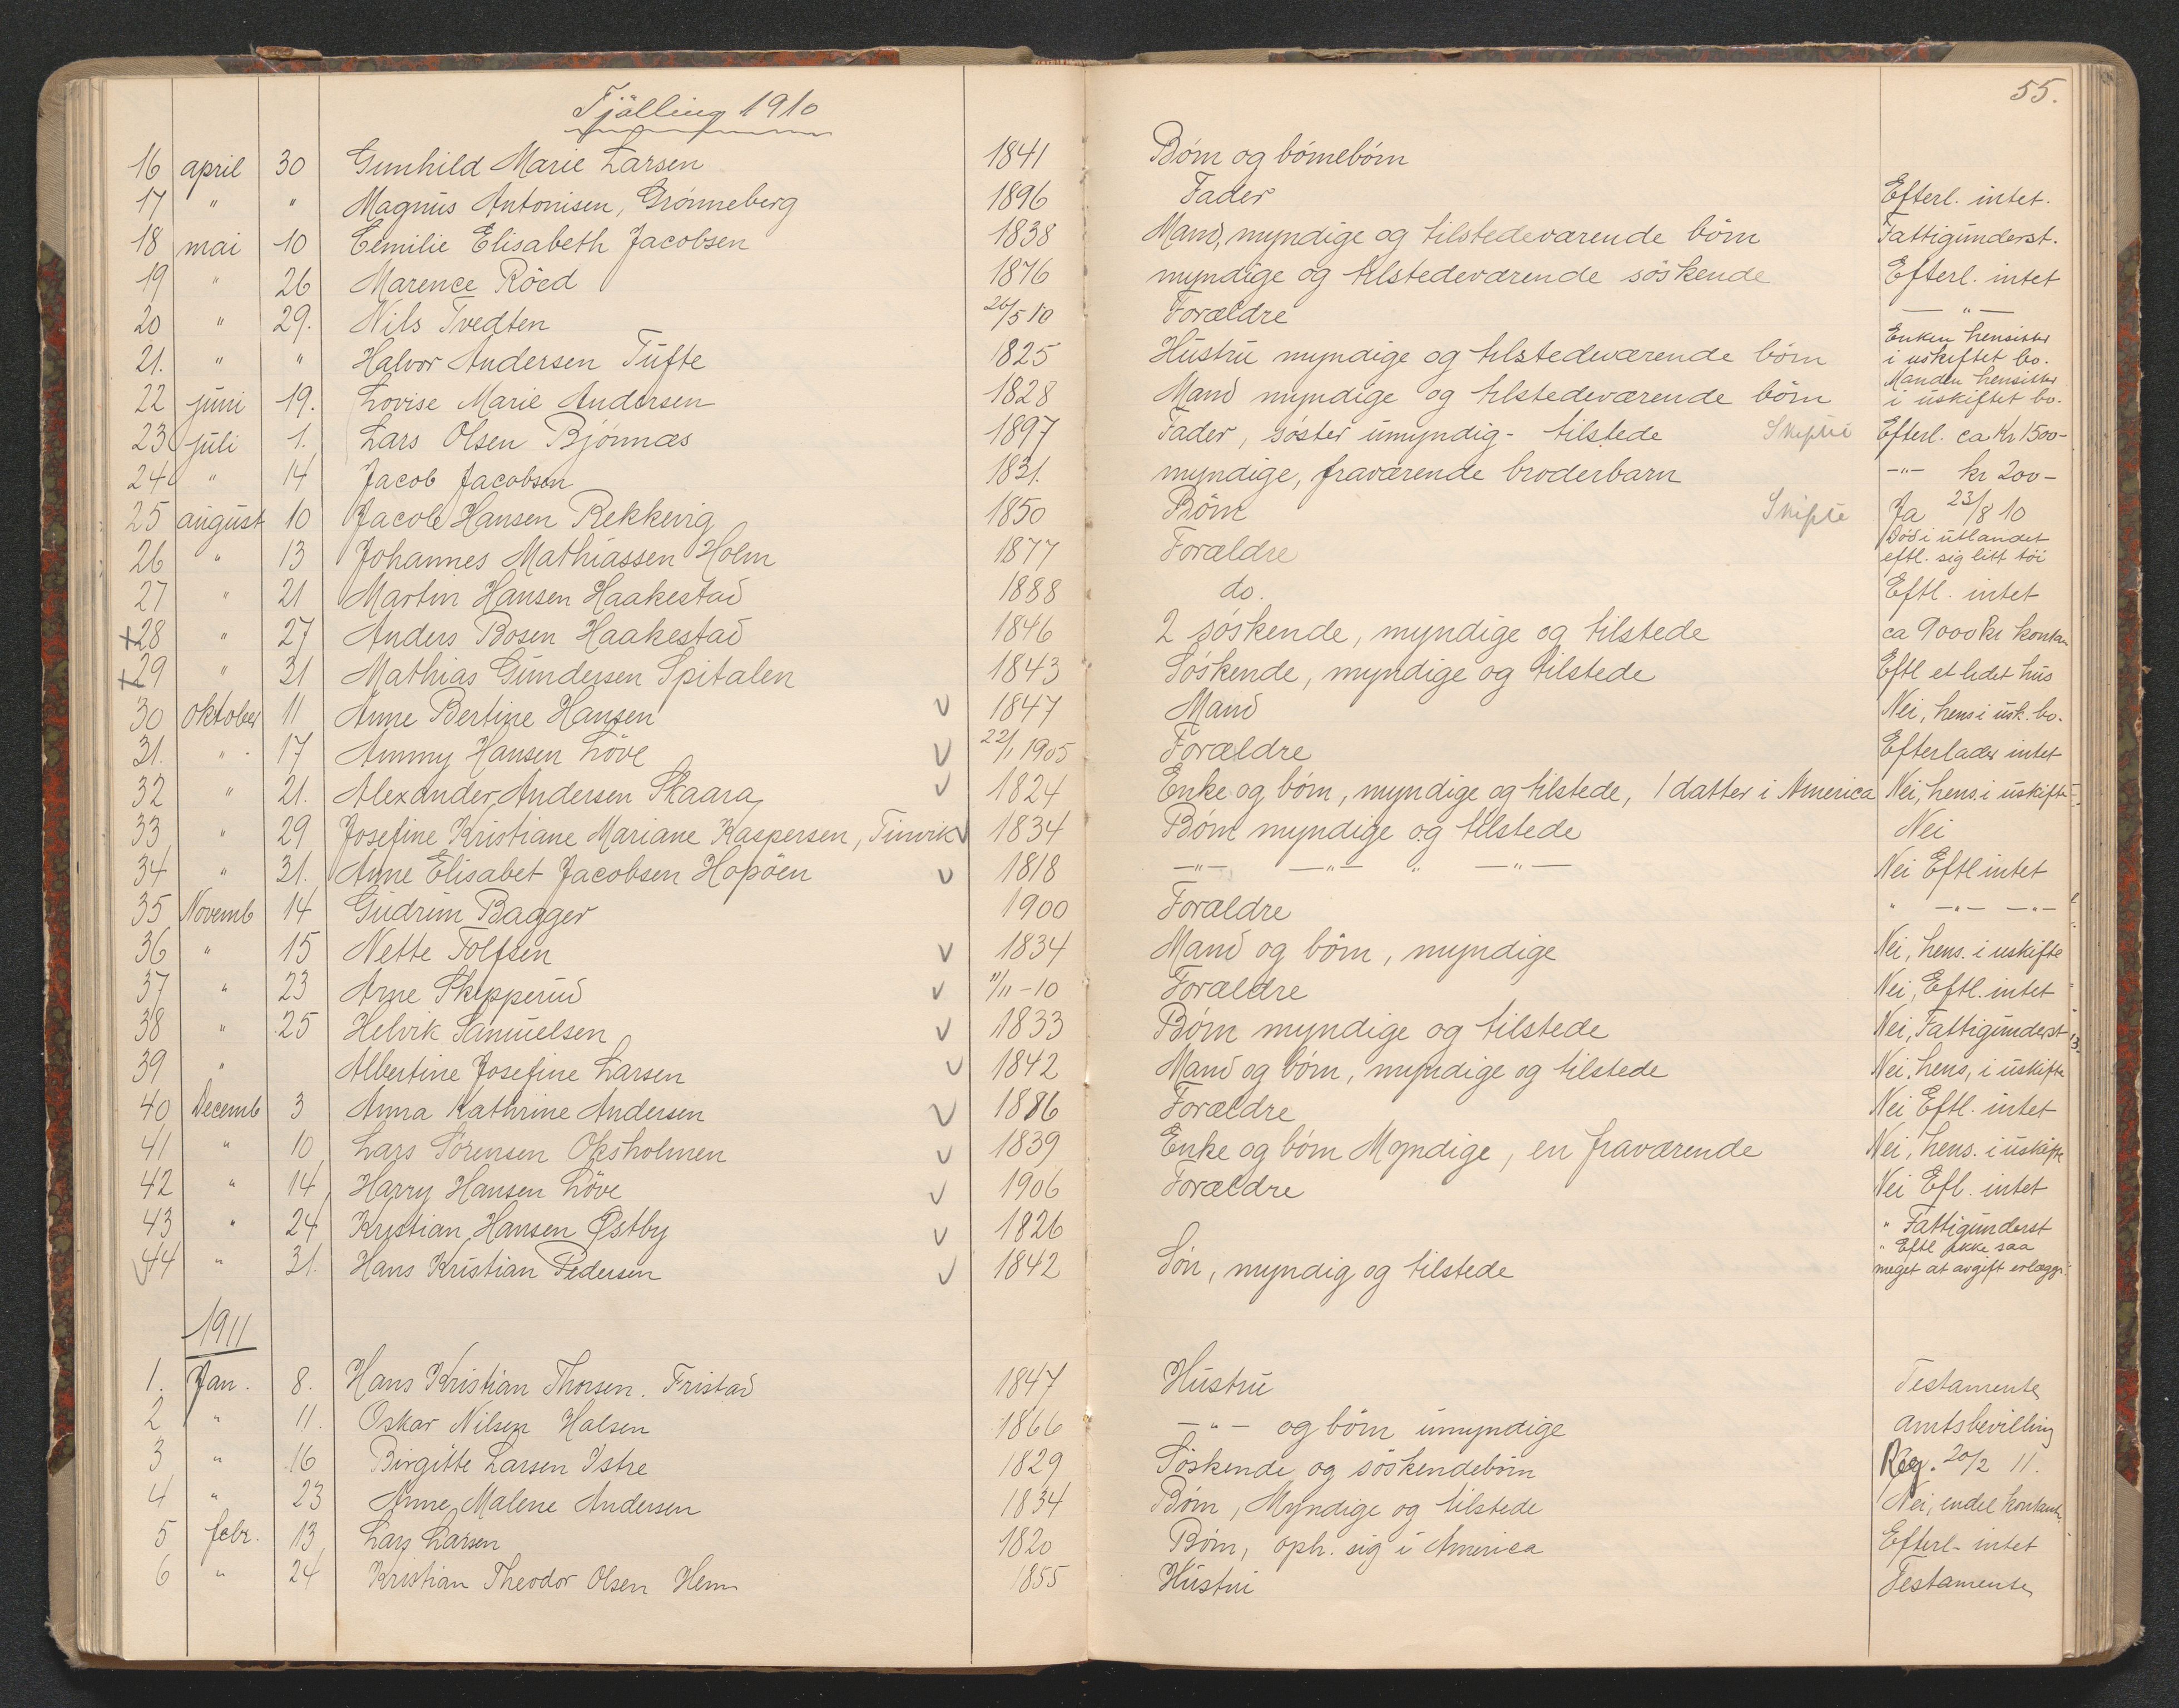 55.
Tjølling 1910
16 april 30 Gunhild Marie Larsen 1841 Børn og børnebørn
17 " " Magnus Antonisen, Grønneberg 1896 Fader Efterl. intet.
18 mai 10 Cemilie Elisabeth Jacobsen 1838 Mand, myndige og tilstedeværende børn Fattigunderst.
19 " 26 Marence Röed 1876 myndige og tilstedeværende søskende Efterl. intet
20 " 29. Nils Tvedten 26/5 10 Forældre — " —
21. " " Halvor Andersen Tufte 1825 Hustru myndige og tilstedeværende börn Enken hensitter i uskiftet bo.
22 juni 19. Lovise Marie Andersen 1828 Mand myndige og tilstedeværende börn Manden hensitter i uskiftet bo.
23 juli 1. Lars Olsen Bjønnæs 1897 Fader, søster umyndig - tilstede Skifte Efterl. ca Kr 1500-
24 " 14 Jacob Jacobsen 1831. myndige, fraværende broderbarn -"- kr 200-
25 august 10 Jacob Hansen Rekkevig 1850 Børn Skifte Ja 23/8 10
26 " 13 Johannes Mathiassen Holm 1877 Forældre Död i utlandet eftl. sig litt töi
27 " 21 Martin Hansen Haakestad 1888 do. Eftl. intet
+28 " 27 Anders Bosen Haakestad 1846 2 søskende, myndige og tilstede ca 9000 kr kontan
+29 " 31 Mathias Gundersen Spitalen 1843 Søskende, myndige og tilstede Eftl et lidet hus
30 oktober 11 Anne Bertine Hansen v 1847 Mand Nei, hens i usk. bo.
31. " 17 Ammy Hansen Löve v 22/1 1905 Forældre Efterlader intet
32 " 21. Alexander Andersen Skaara v 1824 Enke og børn, myndige og tilstede, 1 datter i America Nei, hens. i uskifte
33 " 29 Josefine Kristiane Mariane Kaspersen, Tinvik v 1834 Børn myndige og tilstede Nei
34 " 31. Anne Elisabet Jacobsen Hopöen v 1818 -"- -"- " -"- Nei Eftl intet
35 Novemb 14 Gudrun Bagger 1900 Forældre " -"- -"-
36 " 15 Nette Tolfsen v 1834 Mand og börn, myndige Nei, hens. i uskifte
37 " 23 Arne Skipperud v 11/11-10 Forældre Nei, Eftl. intet
38 " 25 Helvik Samuelsen v 1833 Børn myndige og tilstede Nei, Fattigunderst
39 " Albertine Josefine Larsen v 1842 Mand og börn, myndige og tilstede Nei, hens, i uskifte
40 Decemb 3 Anna Kathrine Andersen v 1886 Forældre Nei Eftl. intet
41 " 10 Lars Sörensen Oksholmen v 1839 Enke og børn Myndige, en fraværende Nei, hens. i uskifte
42 " 14 Harry Hansen Löve v 1906 Forældre Nei Efl. intet
43 " 24 Kristian Hansen Østby v 1826 " Fattigunderst
44 " 31. Hans Kristian Pedersen v 1842 Søn, myndig og tilstede " Eftl ikke saa meget at avgift erlægg
1911
1. Jan. 8. Hans Kristian Thorsen. Fristad 1847 Hustru Testamente
2 " 11. Oskar Nilsen Halsen 1866 — " — og børn umyndige Amtsbevilling
3 " 16 Birgitte Larsen Istre 1829 Søskende og søskendebørn Reg. 20/2 11.
4 " 23 Anne Malene Andersen 1834 Børn, Myndige og tilstede Nei, endel kontant.
5 febr. 13 Lars Larsen 1820 Børn, oph. sig i America Efterl- intet
6 " 24 Kristian Theodor Olsen Hem 1855 Hustru Testamente